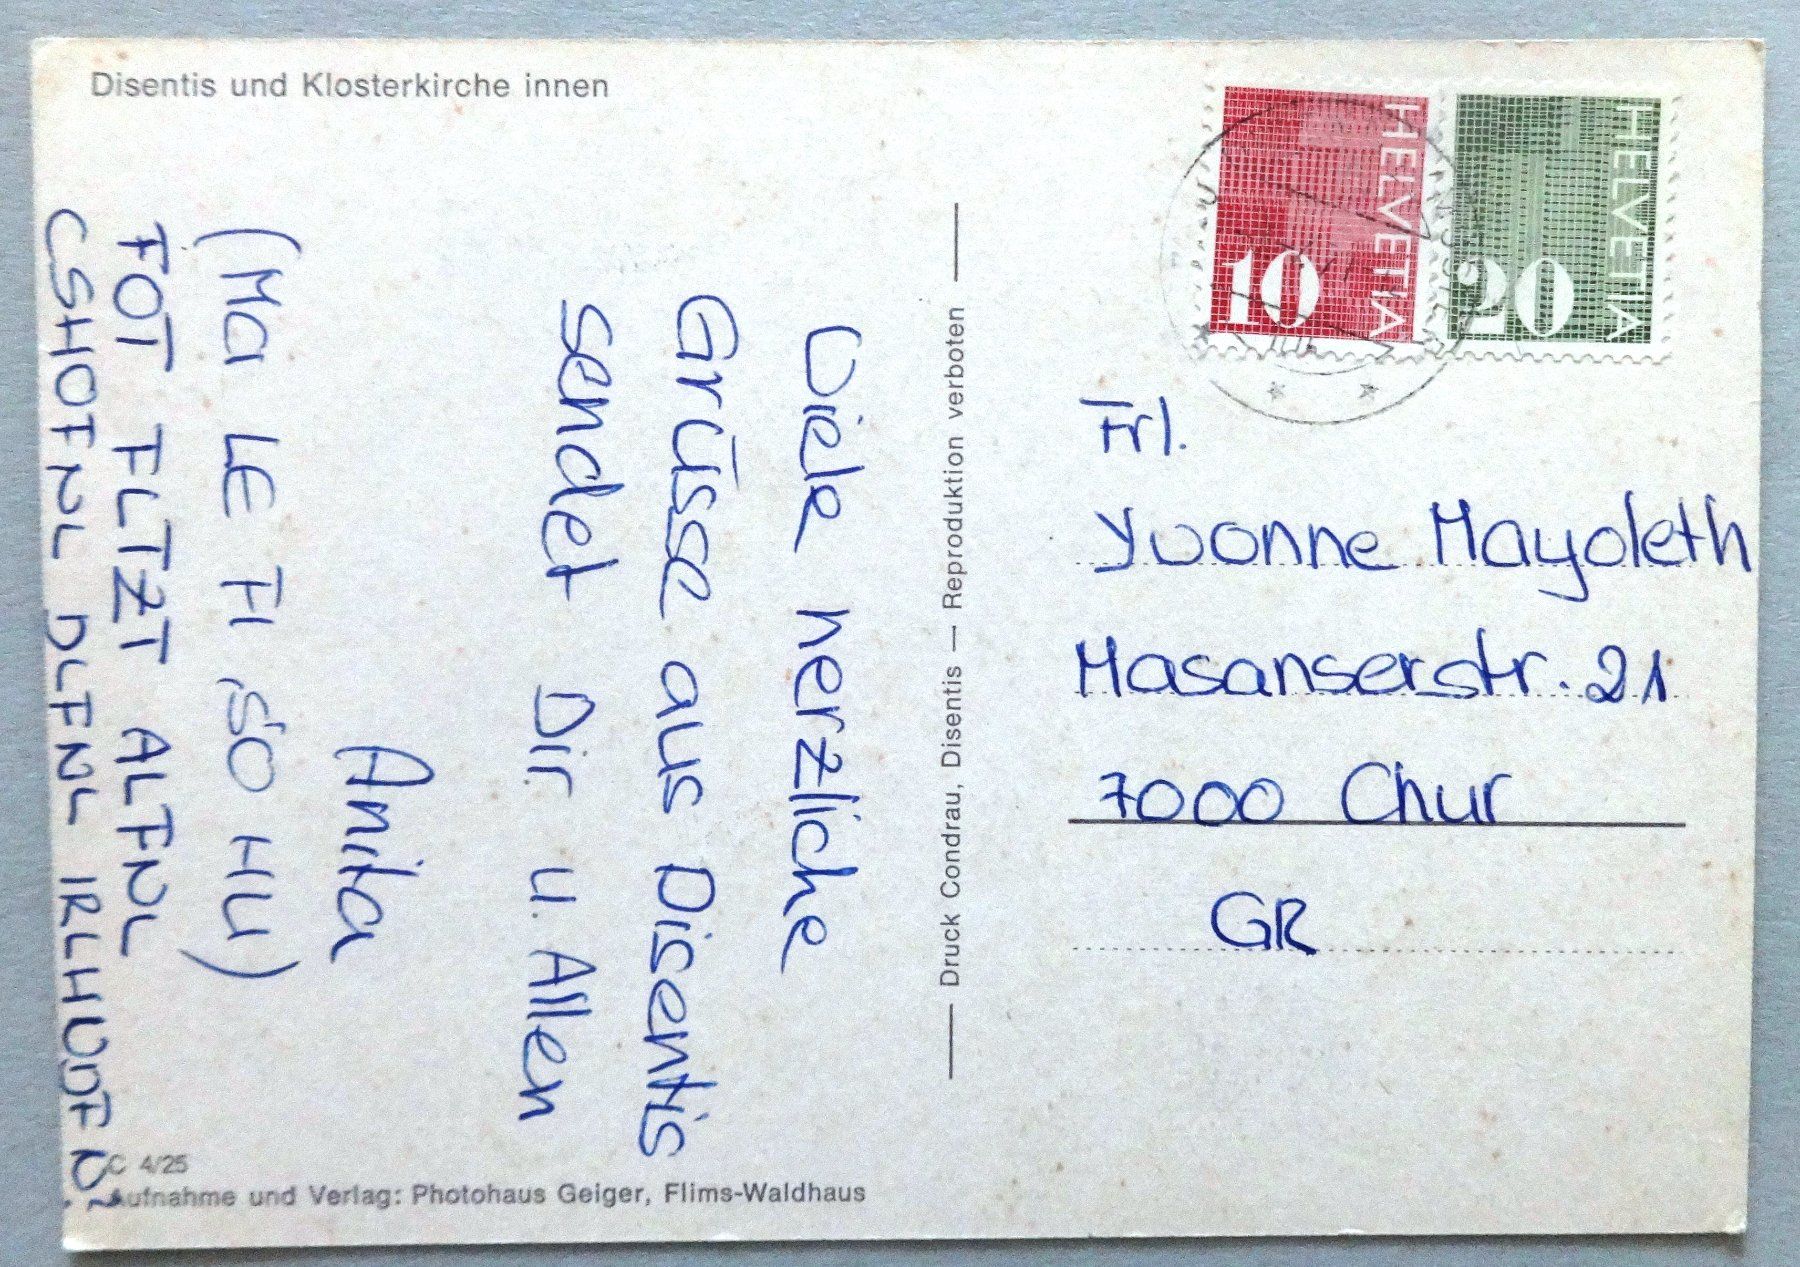 Disentis und Klosterkirche innen
HELVETIA
10
HELVETIA
20
Viele herzliche
Grüsse aus Disentis
sendet Dir u. Allen
Anita
(Ma LE FI SO HU)
FOT FLTZT ALFNL
CSHOFNL DLFNL IRLHUDFN
Druck Condrau, Disentis — Reproduktion verboten
Frl.
Yvonne Mayoleth
Masanserstr. 21
7000 Chur
GR
C 4/25
Aufnahme und Verlag: Photohaus Geiger, Flims-Waldhaus